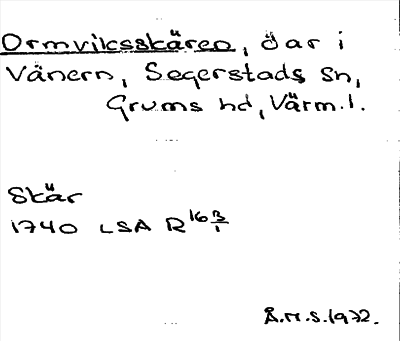 Ormviksskären, öar i
Vänern, Segerstads sn,
Grums hd, Värml.
Skär
1740 LSA R 16 B/1
Å.M.S. 1972.